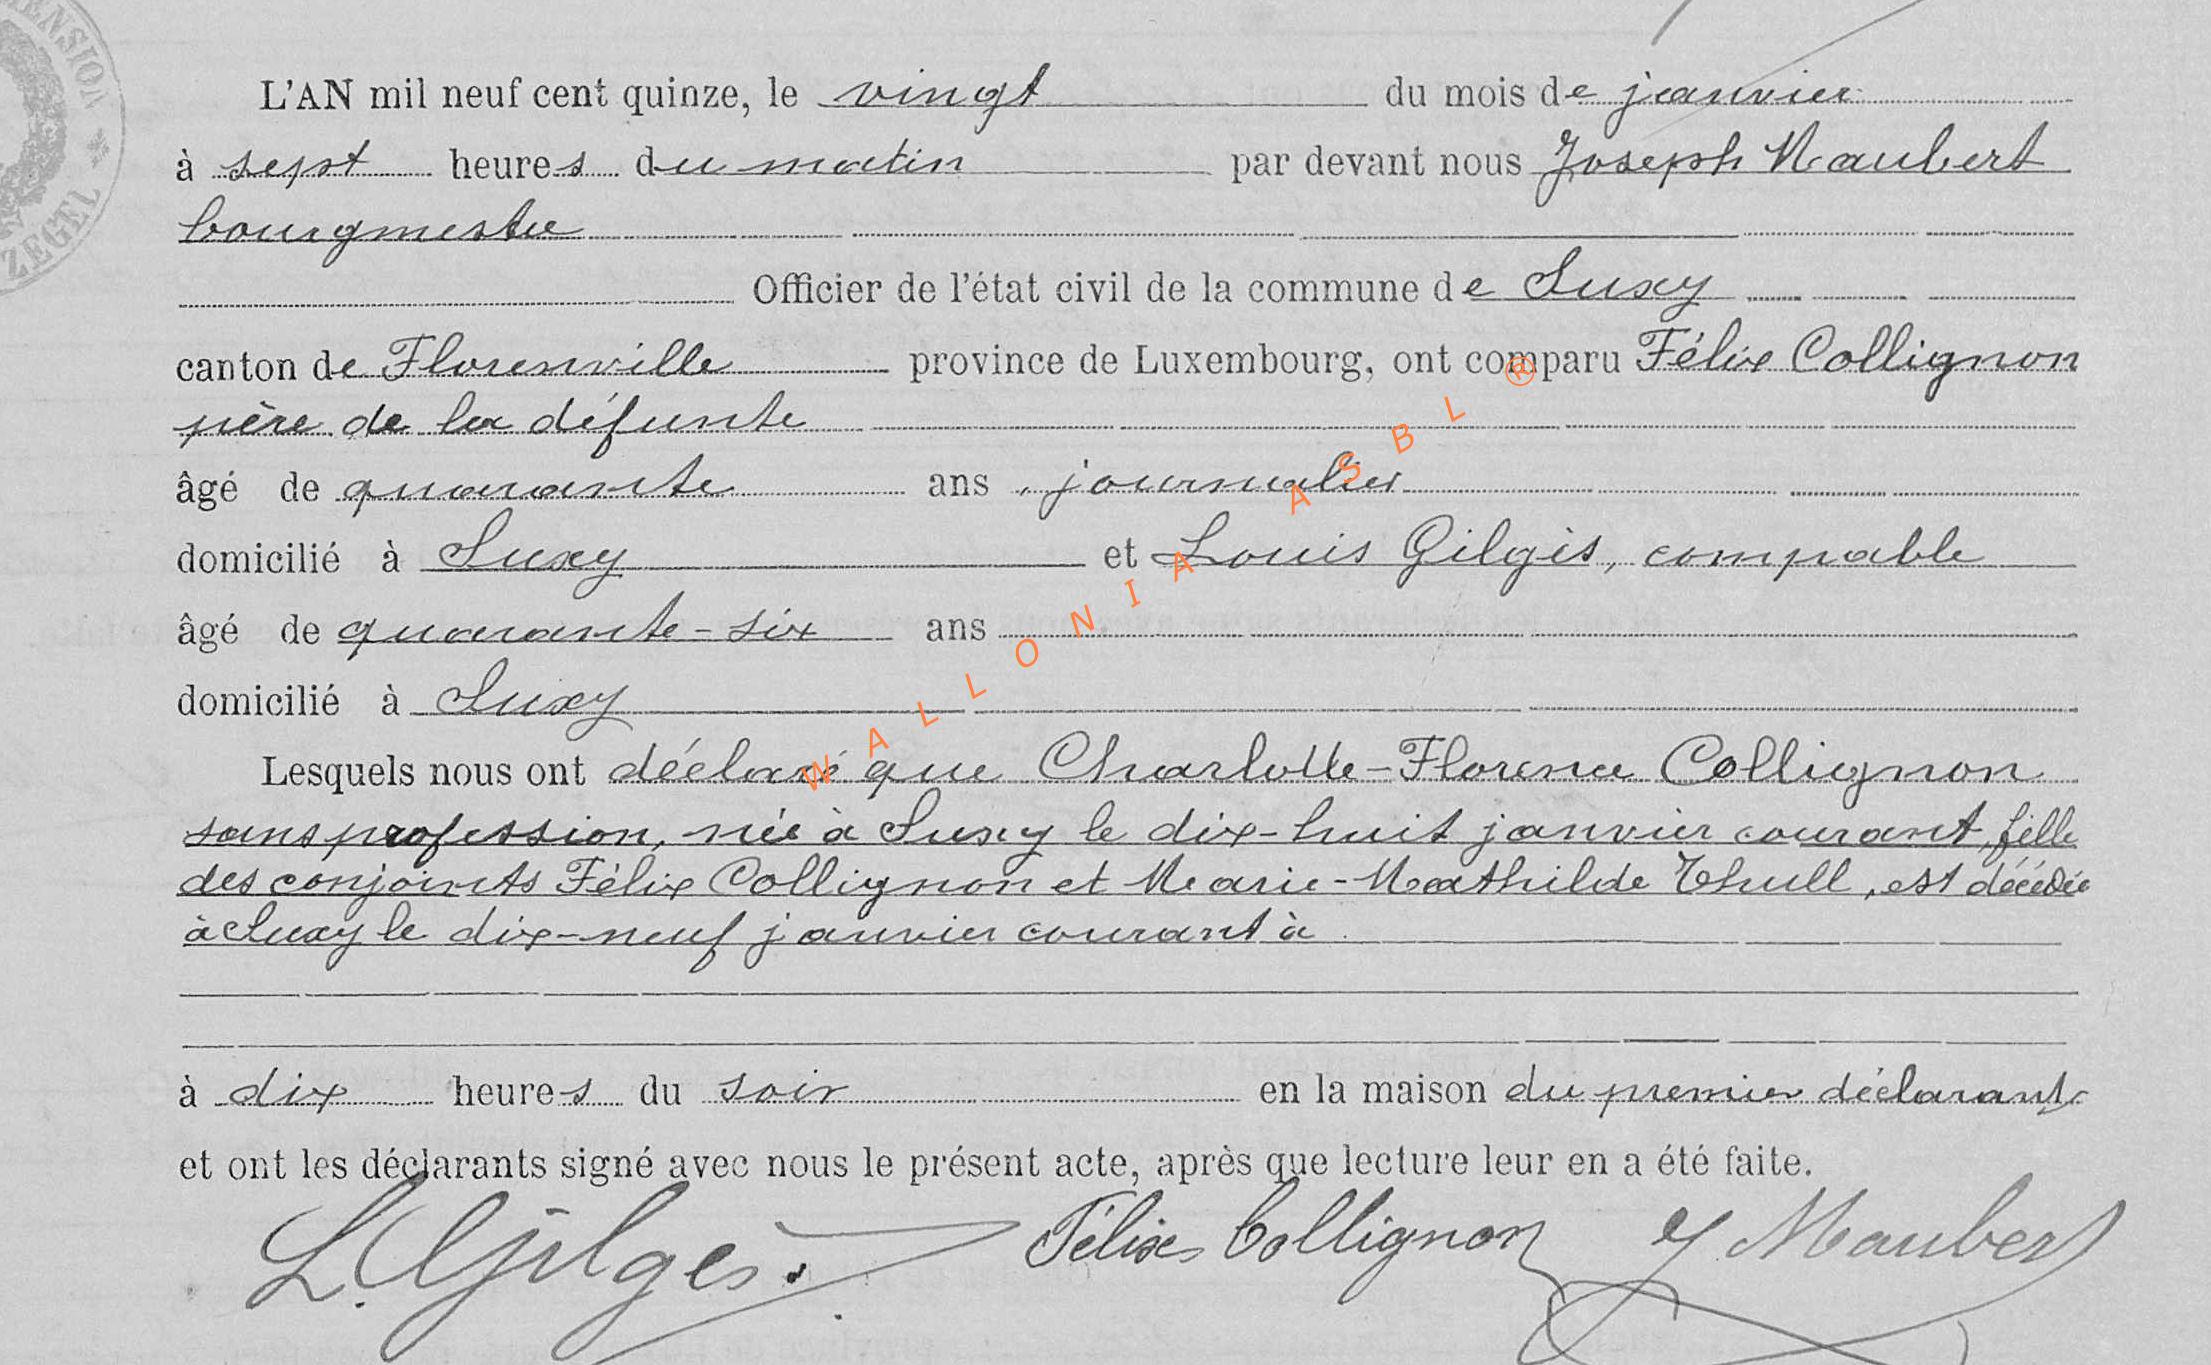 L'AN mil neuf cent quinze, le vingt du mois de janvier
à sept heures du matin par devant nous Joseph Maubert
bourgmestre
Officier de l'état civil de la commune de Suxy
canton de Florenville province de Luxembourg, ont comparu Félix Collignon
père de la défunte
âgé de quarante ans, journalier
domicilié à Suxy et Louis Gilgès, comptable
âgé de quarante-six ans
domicilié à Suxy
Lesquels nous ont déclaré que Charlotte-Florence Collignon
sans profession, née à Suxy le dix-huit janvier courant, fille
des conjoints Félix Collignon et Marie-Mathilde Thull, est décédée
à Suxy le dix-neuf janvier courant à
à dix heures du soir en la maison du premier déclarant
et ont les déclarants signé avec nous le présent acte, après que lecture leur en a été faite.
L. Gilges. Félix Collignon J Maubert
ZEGEL
WALLONIA ASBL ®